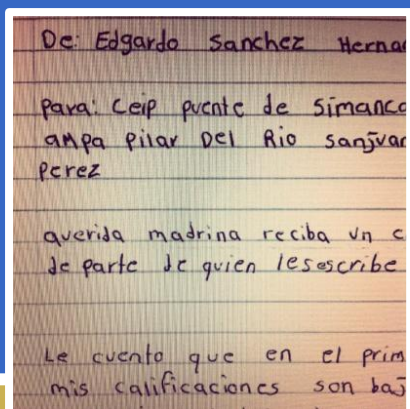 De: Edgardo Sanchez Herna
para: Ceip puente de Simanca
ampa pilar Del Rio sanjuar
perez
querida madrina reciba un c
de parte de quien les escribe
Le cuento que en el prim
mis calificaciones son baj